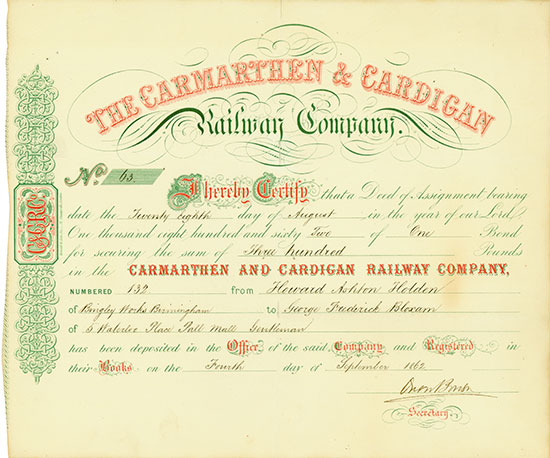 THE CARMARTHEN & CARDIGAN
Railway Company.
No. 63.
I hereby Certify that a Deed of Assignment bearing
date the Twenty eighth day of August in the year of our Lord,
One thousand eight hundred and sixty Two of One Bond
for securing the sum of Three hundred Pounds
in the CARMARTHEN AND CARDIGAN RAILWAY COMPANY,
NUMBERED 132 from Howard Ashton Holden
of Bingley Works Birmingham to George Frederick Bloxam
of 5 Waterloo Place Pall Mall Gentleman
has been deposited in the Office of the said, Company and Registered in
their Books on the Fourth day of September 1862
Secretary.
C&CRC